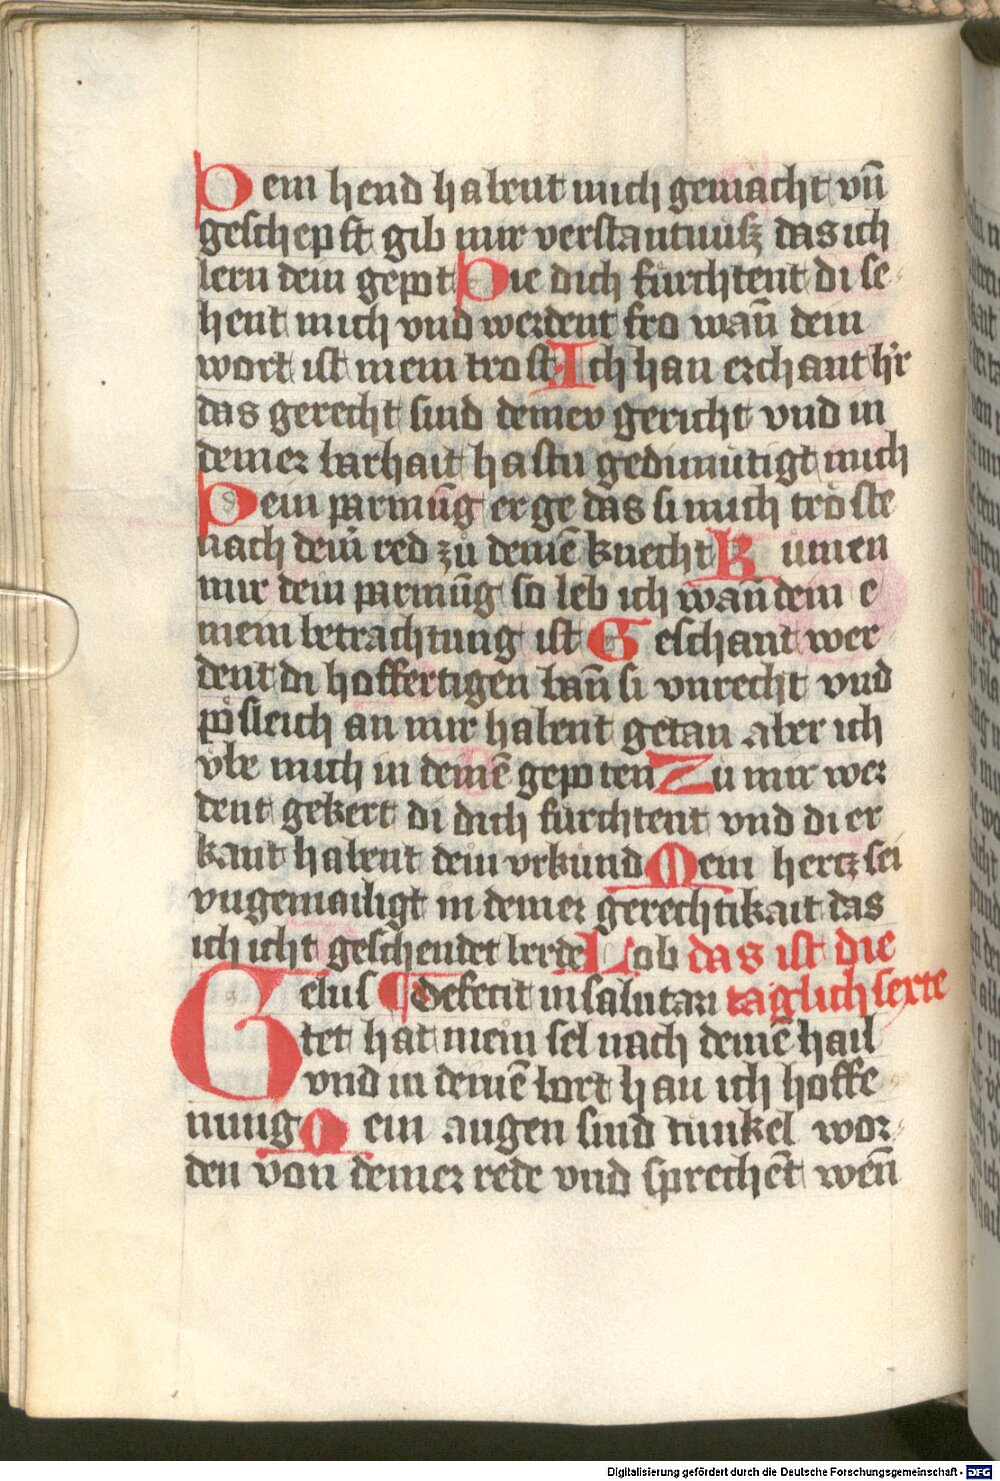 Dein hend habent mich gemacht vn̄
geschepft gib mir verstantnusz das ich
lern dein gepot Die dich furchtent di se-
hent mich vnd werdent fro wan̄ dein
wort ist mein trost Ich han erchant h'r
das gerecht sind deinev gericht vnd in
deiner barhait hastu gedimutigt mich
Dein parmūg erge das si mich trőste
nach deiner red zů deinē knecht Kumen
mir dein parmūg so leb ich wan̄ dein e
mein betrachtung ist Geschant wer
dent di hoffertigen ban̄ si vnrecht vnd
pősleich an mir habent getan aber ich
vbe mich in deinē gepoten Zu mir wer
dent gekert di dich furchtent vnd di er
kant habent dein vrkund Mein hertz sei
vngemailigt in deiner gerechtikait das
ich icht geschendet berde Lob das ist die
Gelus Defecit in salutari taglich sexte
tet hat mein sel nach deinē hail
vnd in deinē bort han ich hoffe
nung Mein augen sind tunkel wor-
den von deiner rede vnd sprechēt wen̄
Digitalisierung gefördert durch die Deutsche Forschungsgemeinschaft - DFG